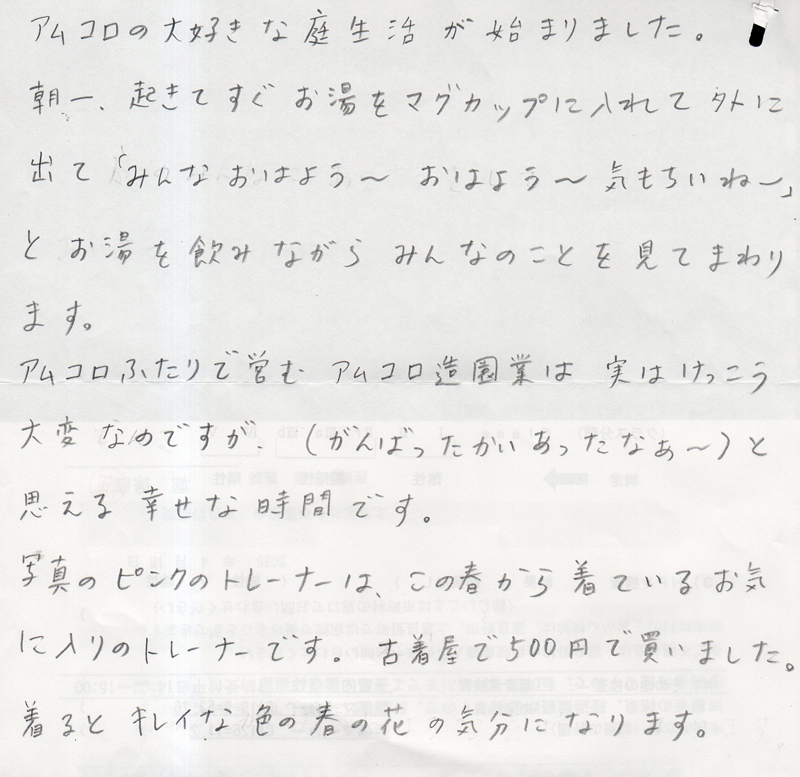 アムコロの大好きな庭生活が始まりました。
朝一、起きてすぐお湯をマグカップに入れて外に
出て「みんなおはよう〜 おはよう〜 気もちいねー」
とお湯を飲みながらみんなのことを見てまわり
ます。
アムコロふたりで営む アムコロ造園業は 実はけっこう
大変なのですが、(がんばったかいあったなぁ〜)と
思える幸せな時間です。
写真のピンクのトレーナーは、この春から着ているお気
に入りのトレーナーです。古着屋で500円で買いました。
着るとキレイな色の春の花の気分になります。